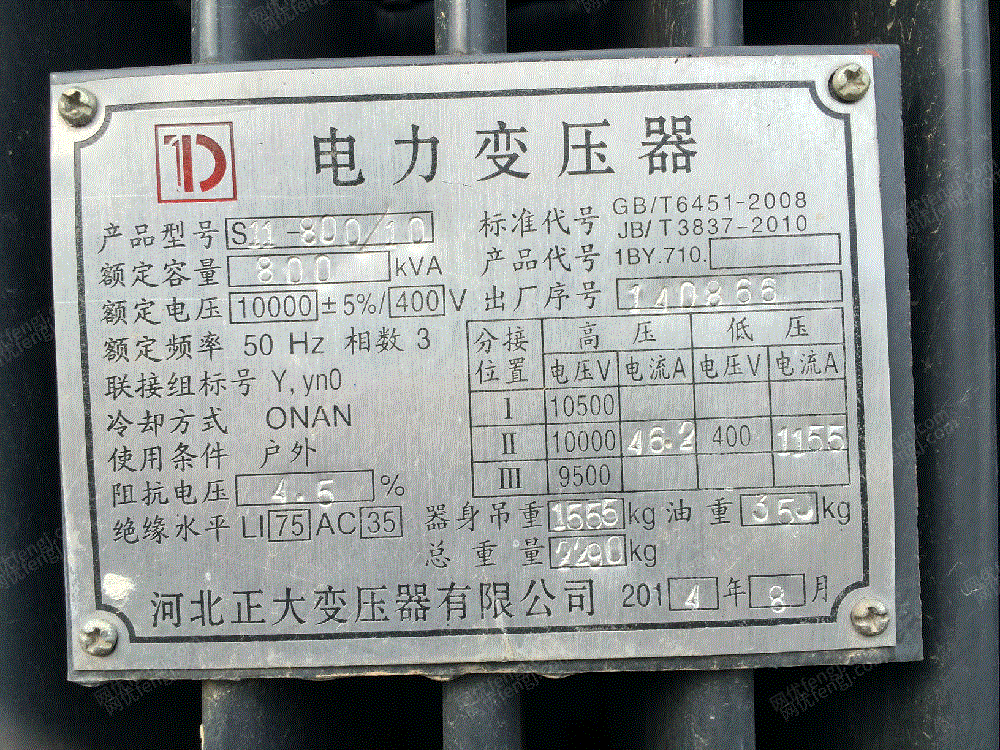 电力变压器
产品型号 S11-800/10
额定容量 800 kVA
额定电压 10000 ±5%/ 400 V
额定频率 50 Hz 相数 3
联接组标号 Y,yn0
冷却方式 ONAN
使用条件 户外
阻抗电压 4.5 %
绝缘水平 LI 75 AC 35
标准代号 GB/T6451-2008
JB/T3837-2010
产品代号 1BY.710.
出厂序号 140866
分接位置 高压 低压
电压V 电流A 电压V 电流A
I 10500
II 10000 46.2 400 1155
III 9500
器身吊重 1555 kg 油重 kg
总重量 2290 kg
河北正大变压器有限公司 2014年8月